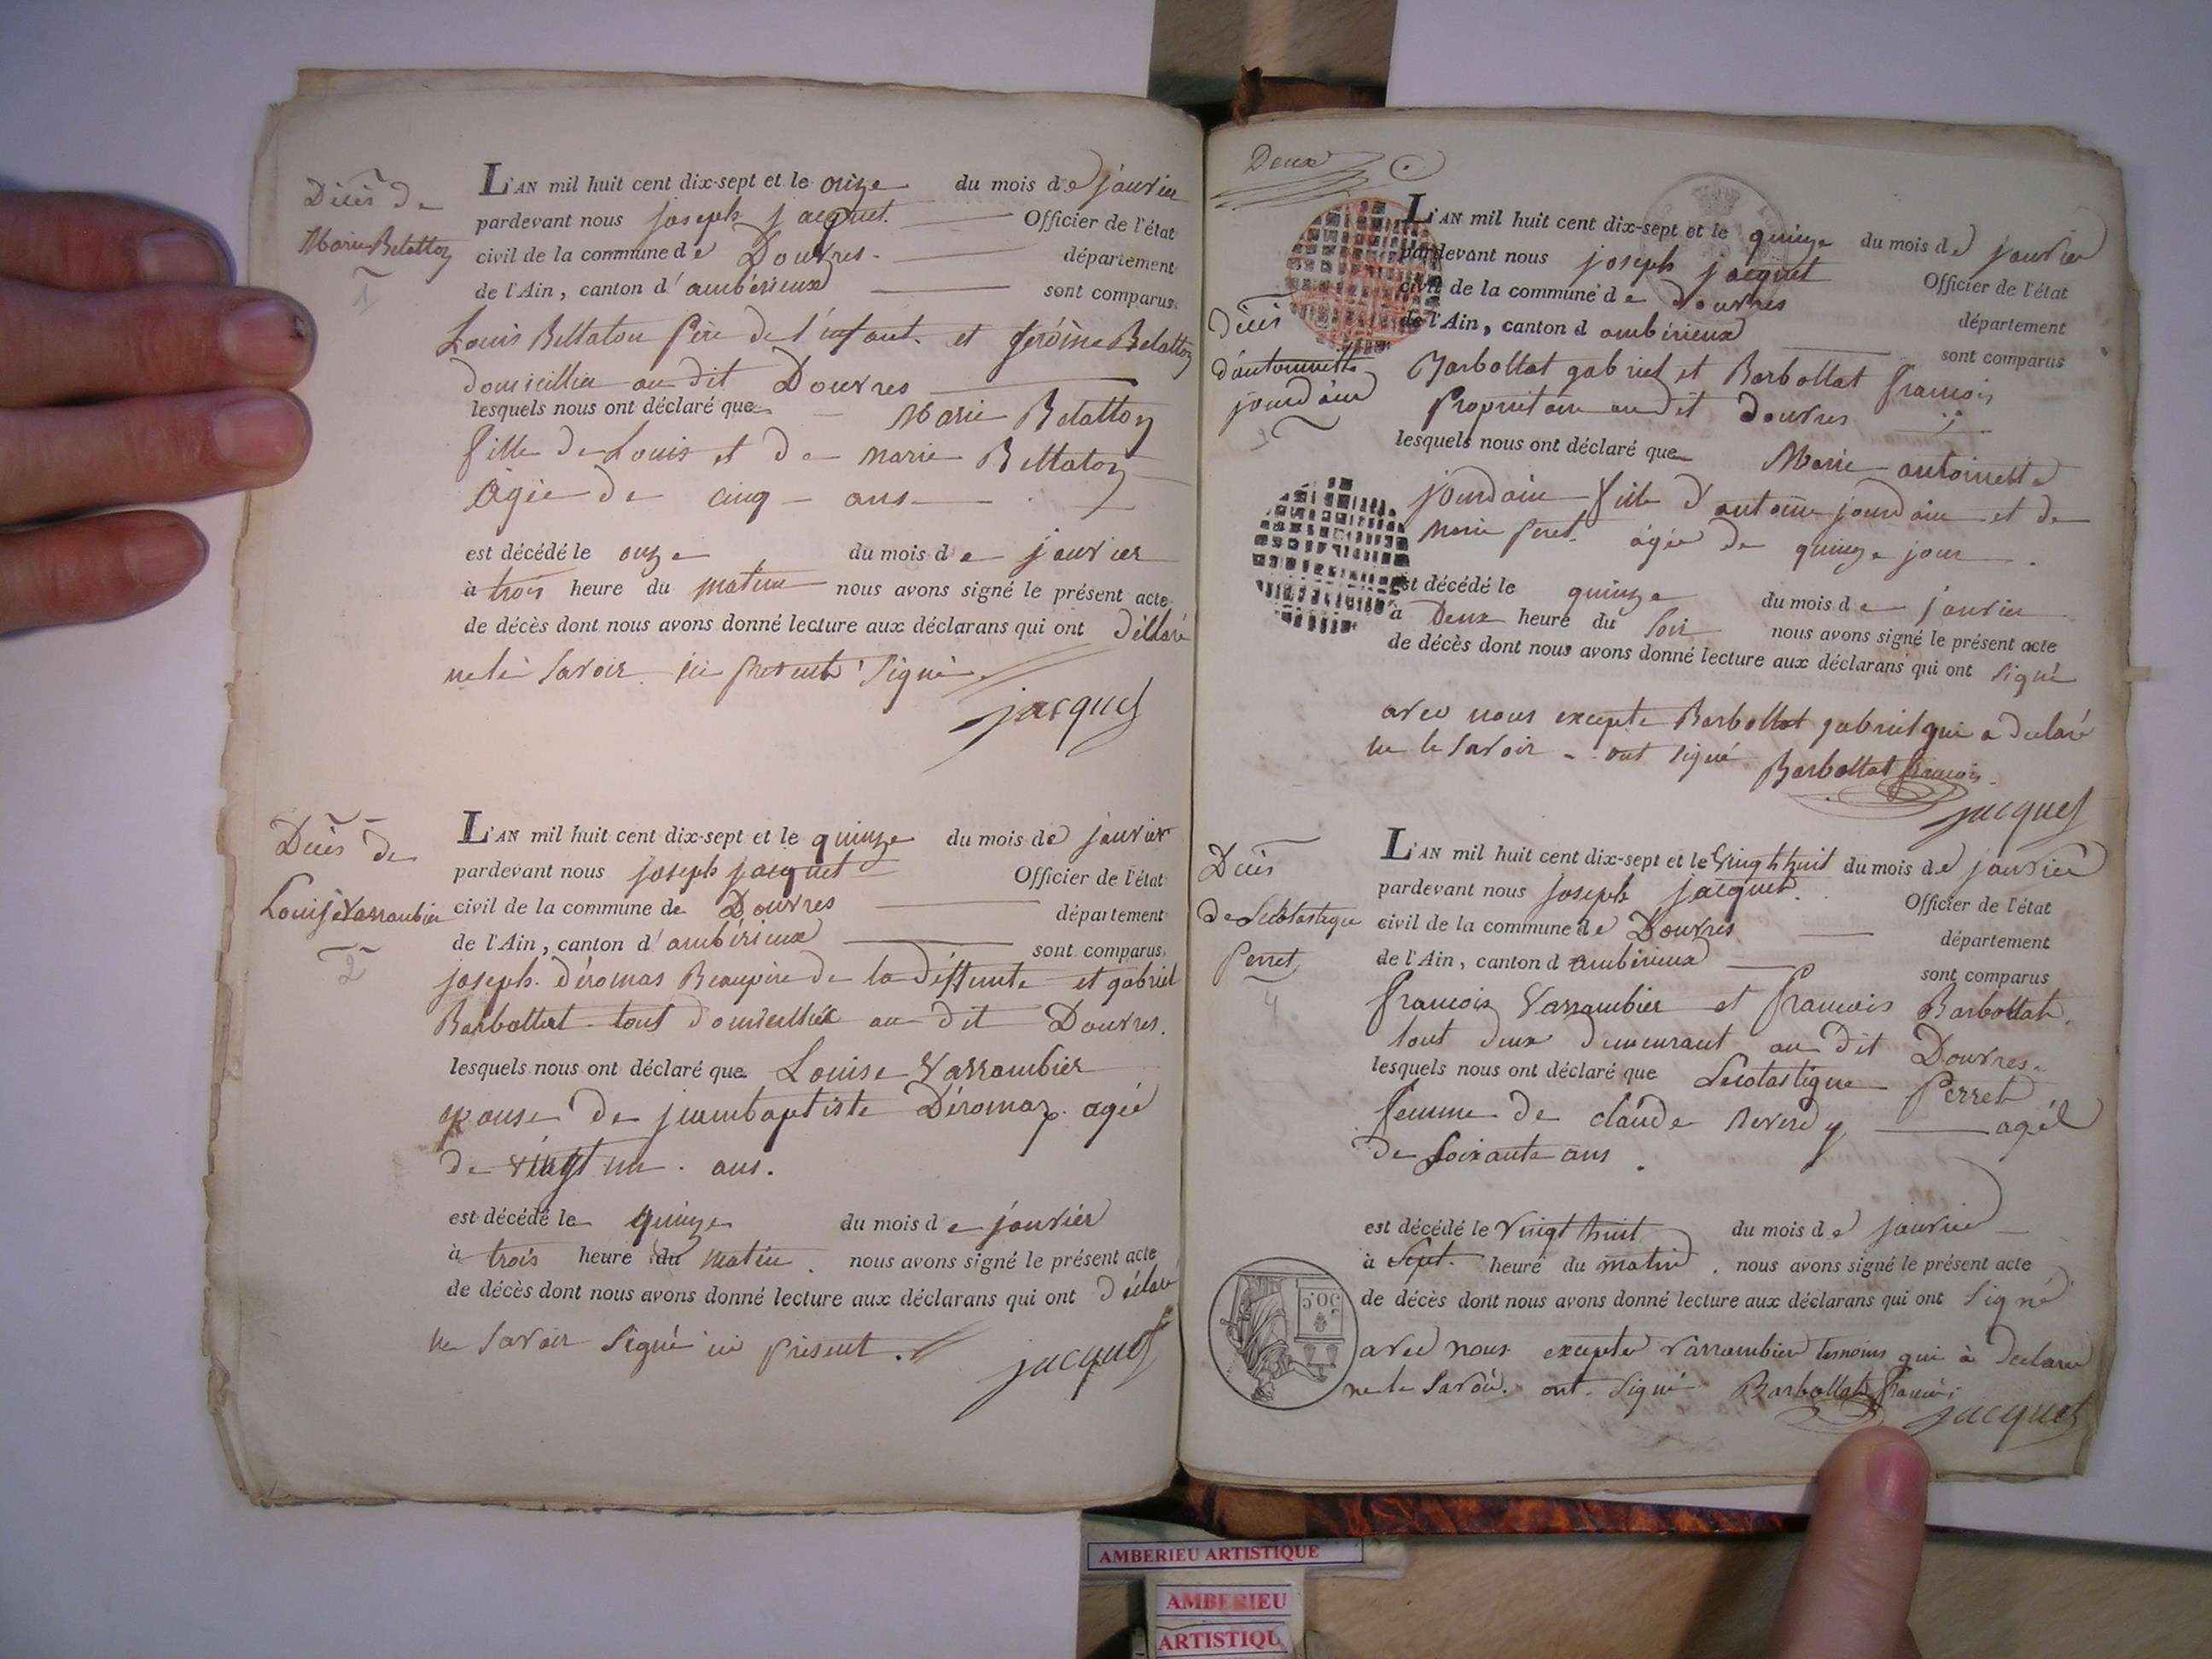 Décès de
Marie Belatton
1
L'AN mil huit cent dix-sept et le onze du mois de janvier
pardevant nous joseph jacquet Officier de l'état
civil de la commune de Douvres département
de l'Ain, canton d'ambérieux sont comparus
Louis Bellaton père de l'enfant et Jérôme Belatton
domicillier au dit Douvres
lesquels nous ont déclaré que Marie Belatton
fille de Louis et de marie Bellaton
agée de cinq ans
est décédé le onze du mois de janvier
à trois heure du matin nous avons signé le présent acte
de décès dont nous avons donné lecture aux déclarans qui ont déclaré
ne le savoir signé
jacquet
Décès de
Louise Varrambier
2
L'AN mil huit cent dix-sept et le quinze du mois de janvier
pardevant nous joseph jacquet Officier de l'état
civil de la commune de Douvres département
de l'Ain, canton d'ambérieux sont comparus
joseph déromas Beaupère de la déffunte et gabriel
Barbollat tout domicillié au dit Douvres.
lesquels nous ont déclaré que Louise Varrambier
epouse de jeanbaptiste Déromaz agée
de vingt un ans.
est décédé le quinze du mois de janvier
à trois heure du matin. nous avons signé le présent acte
de décès dont nous avons donné lecture aux déclarans qui ont déclaré
ne savoir signé présent.
jacquet
Deux
Décès
d'antoinette
jourdain
3
L'AN mil huit cent dix-sept et le quinze du mois de janvier
pardevant nous joseph jacquet Officier de l'état
civil de la commune de Douvres département
de l'Ain, canton d ambérieux sont comparus
Barbollat gabriel et Barbollat françois
propriétaire au dit douvres
lesquels nous ont déclaré que Marie antoinette
jourdain fille d'antoine jourdain et de
marie peret agée de quinze jour
est décédé le quinze du mois de janvier
à Deux heure du soir nous avons signé le présent acte
de décès dont nous avons donné lecture aux déclarans qui ont signé
avec nous excepte Barbollat gabriel qui a declaré
ne le savoir ont signé Barbollat françois
jacquet
Décès
de Scolastique
Perret
4
L'AN mil huit cent dix-sept et le vingt huit du mois de janvier
pardevant nous joseph jacquet Officier de l'état
civil de la commune de Douvres département
de l'Ain, canton d ambérieux sont comparus
françois Varrambier et françois Barbollat
tout deux demeurant au dit Douvres.
lesquels nous ont déclaré que Scolastique Perret
femme de claude Reverdy agée
de soixante ans.
est décédé le vingt huit du mois de janvier
à sept heure du matin. nous avons signé le présent acte
de décès dont nous avons donné lecture aux déclarans qui ont signé
avec nous excepter varrambier temoins qui à declarer
ne le savoir. ont signé Barbollat françois
jacquet
30.C
AMBERIEU ARTISTIQUE
AMBERIEU
ARTISTIQU